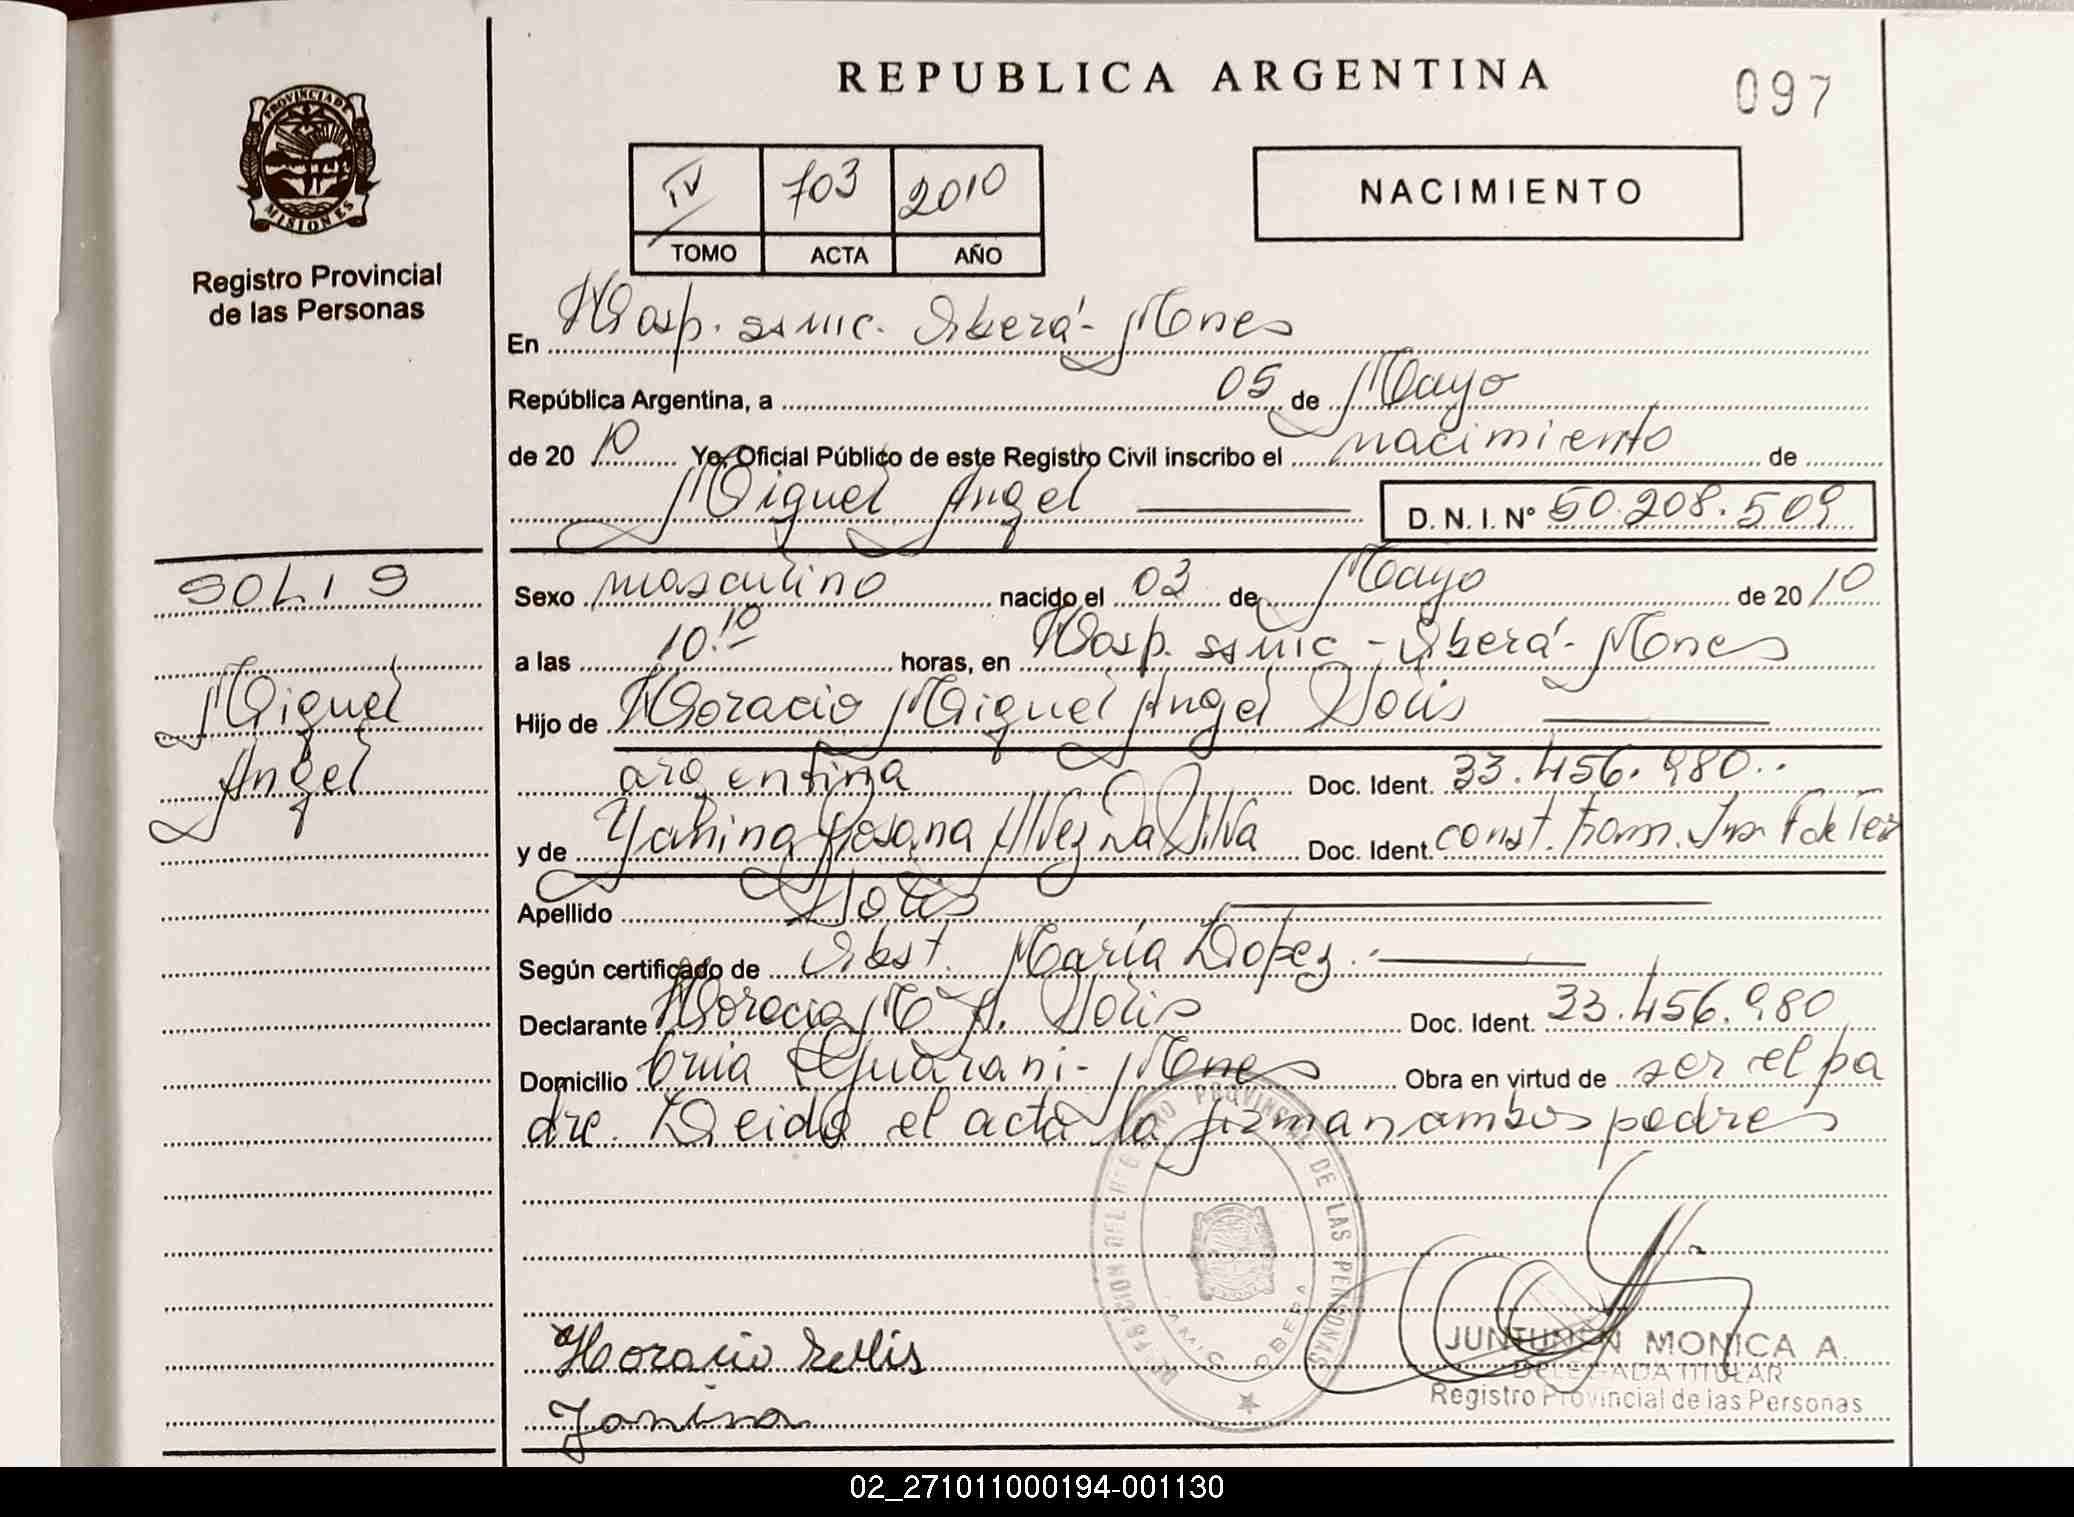 REPUBLICA ARGENTINA
097
PROVINCIA DE
MISIONES
Registro Provincial
de las Personas
IV 703 2010
TOMO ACTA AÑO
NACIMIENTO
En Hosp. SAMIC. Oberá - Mnes
República Argentina, a 05 de Mayo
de 2010 Yo, Oficial Público de este Registro Civil inscribo el nacimiento de
Miguel Angel
D. N. I. Nº 50.208.509
SOLIS
Miguel
Angel
Sexo masculino nacido el 03 de Mayo de 2010
a las 10.10 horas, en Hosp. SAMIC - Oberá - Mnes
Hijo de Horacio Miguel Angel Solis
argentina Doc. Ident. 33.456.980..
y de Yanina Rosana Alvez Da Silva Doc. Ident. const. tram.
Apellido Solis
Según certificado de Obst. Maria Lopez.
Declarante Horacio M. A. Solis Doc. Ident. 33.456.980
Domicilio Guarani - Mnes Obra en virtud de ser el pa
dre. Leida el acta la firman ambos padres
REGISTRO PROVINCIAL DE LAS PERSONAS
OBERA
Horacio Solis
Yanina
JUNTUNEN MONICA A.
DELEGADA TITULAR
Registro Provincial de las Personas
02_271011000194-001130